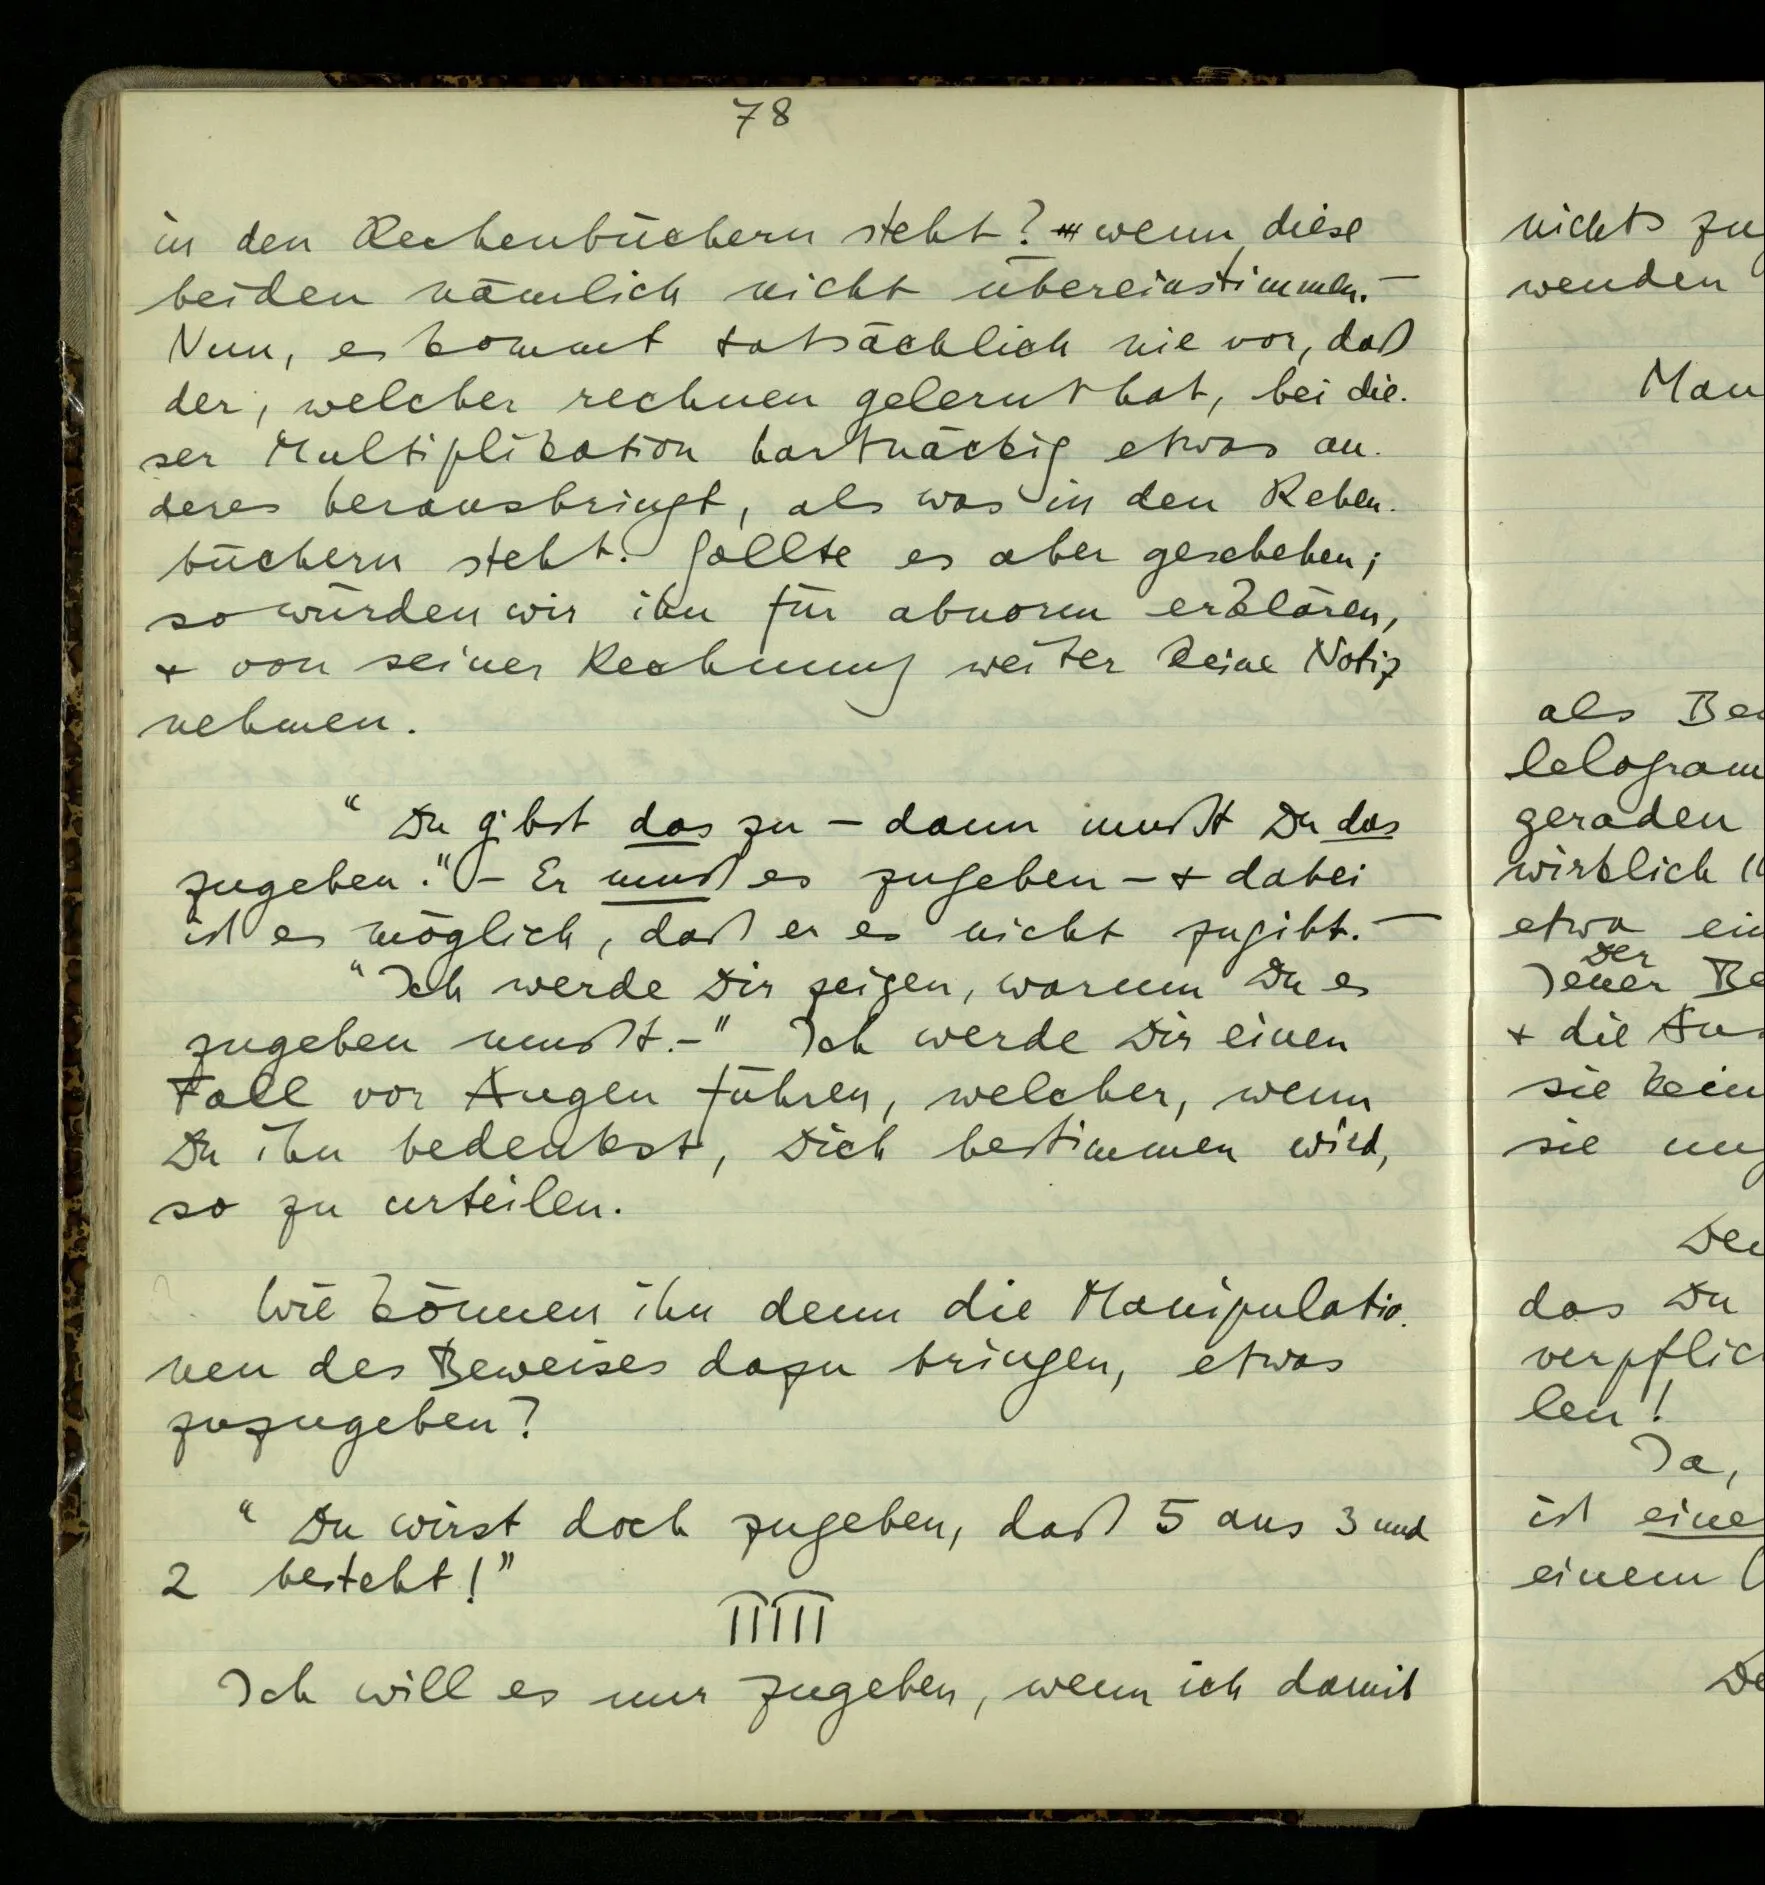 78
in den Rechenbüchern steht? wenn diese
beiden nämlich nicht übereinstimmen. –
Nun, es kommt tatsächlich nie vor, daß
der, welcher rechnen gelernt hat, bei die-
ser Multiplikation hartnäckig etwas an-
deres herausbringt, als was in den Rehen-
büchern steht. Sollte es aber geschehen;
so würden wir ihn für abnorm erklären,
+ von seiner Rechnung weiter keine Notiz
nehmen.
“Du gibst das zu – dann mußt Du das
zugeben.” – Er muß es zugeben – + dabei
ist es möglich, daß er es nicht zugibt. –
“Ich werde Dir zeigen, warum Du es
zugeben mußt. –” Ich werde Dir einen
Fall vor Augen führen, welcher, wenn
Du ihn bedenkst, Dich bestimmen wird,
so zu urteilen.
Wie können ihn denn die Manipulatio-
nen des Beweises dazu bringen, etwas
zuzugeben?
“Du wirst doch zugeben, daß 5 aus 3 und
2 besteht!”
Ich will es nur zugeben, wenn ich damit
nichts zu
wenden
Man
als Be
lelogram
geraden
wirklich
etwa ein
Der
Jener Be
+ die Aus
sie kein
sie
das Du
verpflic
len!
Ja,
ist eine
einem